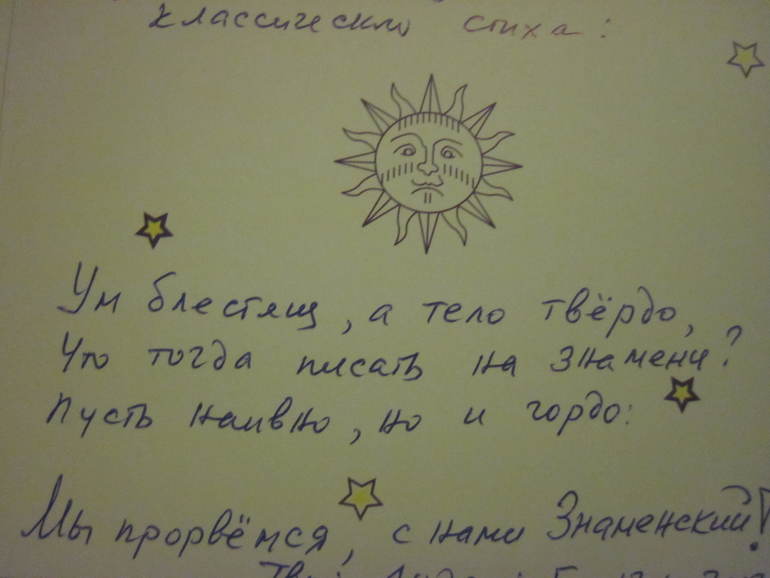 классического стиха:
Ум блестящ, а тело твёрдо,
Что тогда писать на знамени?
Пусть наивно, но и гордо:
Мы прорвёмся, с нами Знаменский!